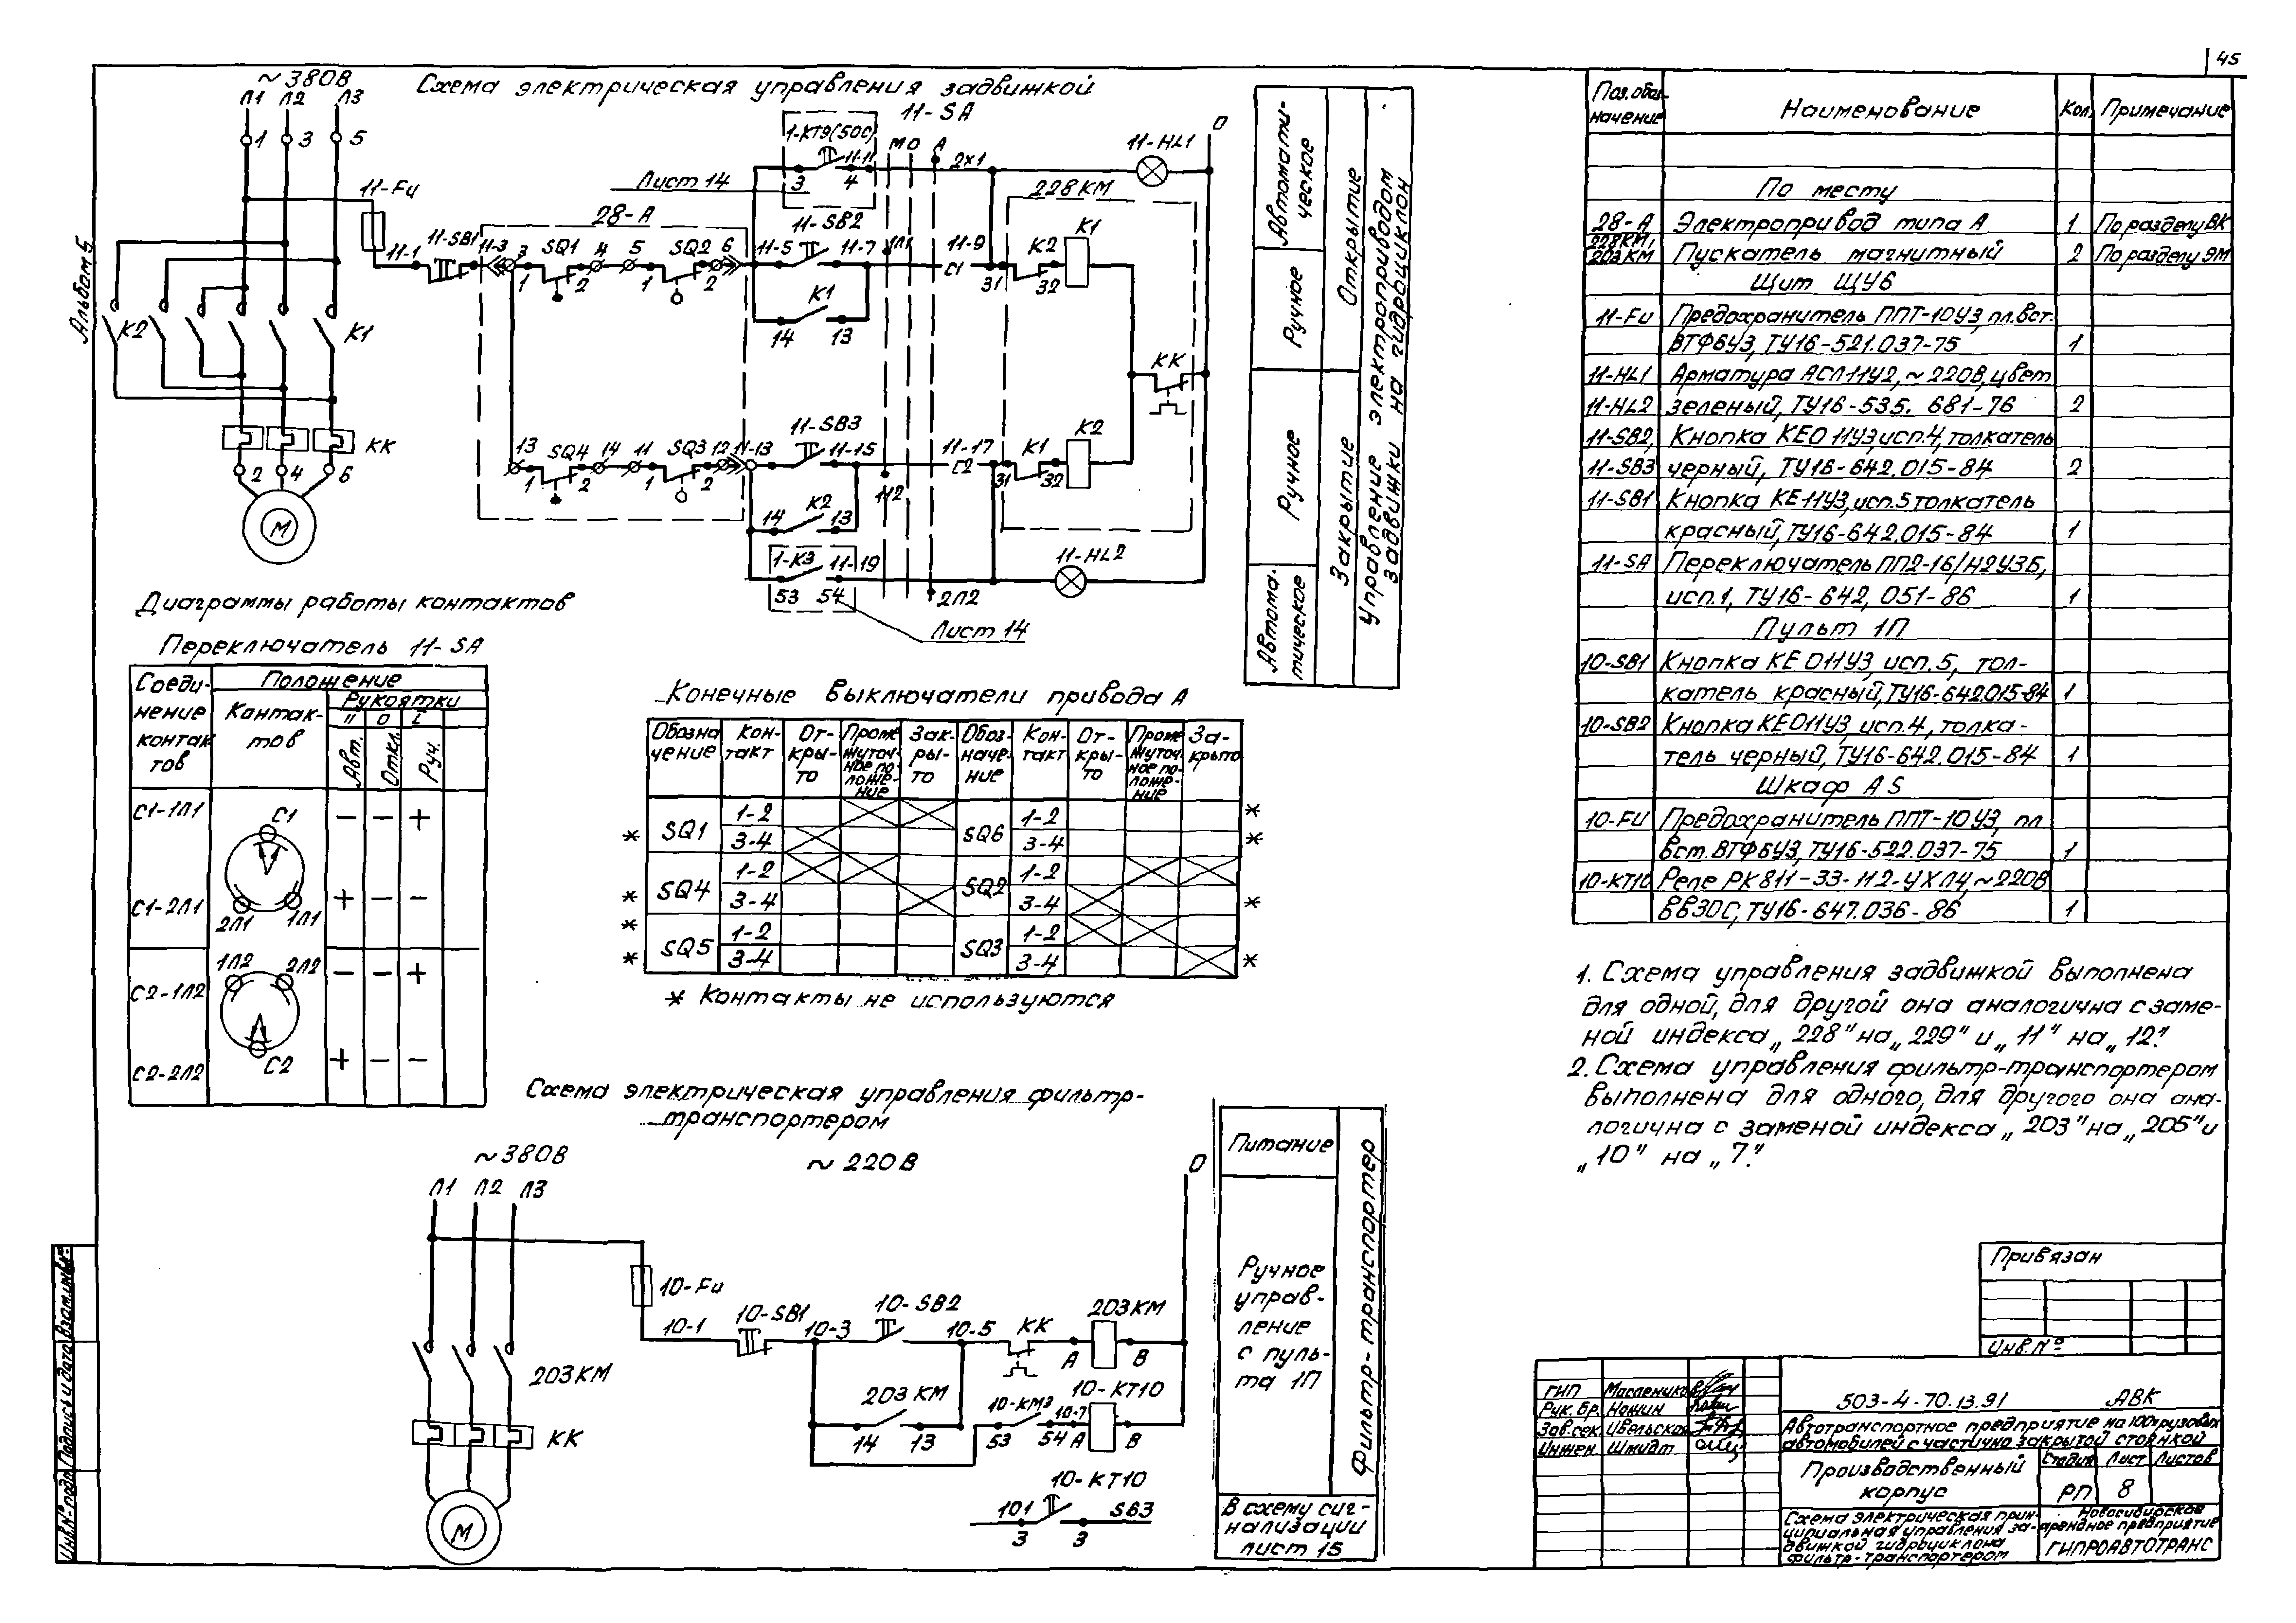 45
Альбом 5
Схема электрическая управления задвижкой
~380В
Л1 Л2 Л3
1 3 5
11-Fu
11-1
11-SB1
11-3
28-А
3 SQ1 4 5 SQ2 6
1 2 1 2
К2 К1
КК
2 4 6
М
Лист 14
1-КТ9(50С)
11-11
3 4
11-SA
М О А
2х1
11-HL1
О
11-SB2
11-5 11-7
1Л1
11-9
С1
228КМ
К2 К1
31 32
К1
14 13
КК
13 SQ4 14 11 SQ3 12 11-13
1 2 1 2
11-SB3
11-15
11-17
С2
1Л2
К1 К2
31 32
К2
14 13
1-К3 11-19
53 54
2Л2
11-HL2
Лист 14
Автоматическое
Ручное
Ручное
Автоматическое
Открытие
Закрытие
Управление электроприводом задвижки на гидроциклон
Диаграммы работы контактов
Переключатель 11-SA
Соединение контактов
Положение
Контактов
Рукоятки
II О I
Авт. Откл. Руч.
С1-1Л1 − − +
С1
С1-2Л1 + − −
2Л1 1Л1
1Л2 2Л2
С2-1Л2 − − +
С2
С2-2Л2 + − −
Конечные выключатели привода А
Обозначение Контакт Открыто Промежуточное положение Закрыто Обозначение Контакт Открыто Промежуточное положение Закрыто
SQ1 1-2 SQ6 1-2 *
* 3-4 3-4 *
SQ4 1-2 SQ2 1-2
* 3-4 3-4 *
* SQ5 1-2 SQ3 1-2
* 3-4 3-4 *
* Контакты не используются
Схема электрическая управления фильтр-
транспортером
~380В
~220В
О
Л1 Л2 Л3
10-Fu
10-1
10-SB1
10-3
10-SB2
10-5
КК
203КМ
А В
203КМ
КК
М
203КМ
14 13
10-КМ3
53 54
10-7
10-КТ10
А В
10-КТ10
101
SB3
3 3
Питание
Ручное
управ-
ление
с пуль-
та 1П
Фильтр-транспортер
В схему сиг-
нализации
лист 15
Поз. обоз-
начение
Наименование
Кол.
Примечание
По месту
28-А Электропривод типа А 1 По разделу ВК
228КМ,
203КМ Пускатель магнитный 2 По разделу ЭМ
Щит ЩУ6
11-Fu Предохранитель ППТ-10У3, пл.вст.
ВТФ6У3, ТУ16-521.037-75 1
11-HL1 Арматура АСЛ11У2, ~220В, цвет
11-HL2 зеленый, ТУ16-535. 681-76 2
11-SB2, Кнопка КЕ011У3, исп.4, толкатель
11-SB3 черный, ТУ16-642.015-84 2
11-SB1 Кнопка КЕ11У3, исп.5 толкатель
красный, ТУ16-642.015-84 1
11-SA Переключатель ПП2-16/Н2У3Б,
исп.1, ТУ16-642, 051-86 1
Пульт 1П
10-SB1 Кнопка КЕ 011У3, исп.5, тол-
катель красный, ТУ16-642.015-84 1
10-SB2 Кнопка КЕ011У3, исп.4, толка-
тель черный, ТУ16-642.015-84 1
Шкаф А5
10-FU Предохранитель ППТ-10У3, пл
вст. ВТФ6У3, ТУ16-522.037-75 1
10-КТ10 Реле РК811-33-112-УХЛ4, ~220В
ВВ30С, ТУ16-647.036-86 1
1. Схема управления задвижкой выполнена
для одной, для другой она аналогична с заме-
ной индекса „228" на „229" и „11" на „12".
2. Схема управления фильтр-транспортером
выполнена для одного, для другого она ана-
логична с заменой индекса „203" на „205" и
„10" на „7".
Привязан
Инв.№
ГИП Масленников
Рук. бр. Ножин
Зав.сек. Цвельская
Инжен. Шмидт
503-4-70.13.91 АВК
Автотранспортное предприятие на 100 грузовых
автомобилей с частично закрытой стоянкой
Производственный
корпус
Стадия Лист Листов
РП 8
Схема электрическая прин-
ципиальная управления за-
движкой гидроциклона
фильтр-транспортером
Новосибирское
арендное предприятие
ГИПРОАВТОТРАНС
Инв.№ подл. Подпись и дата Взам.инв.№